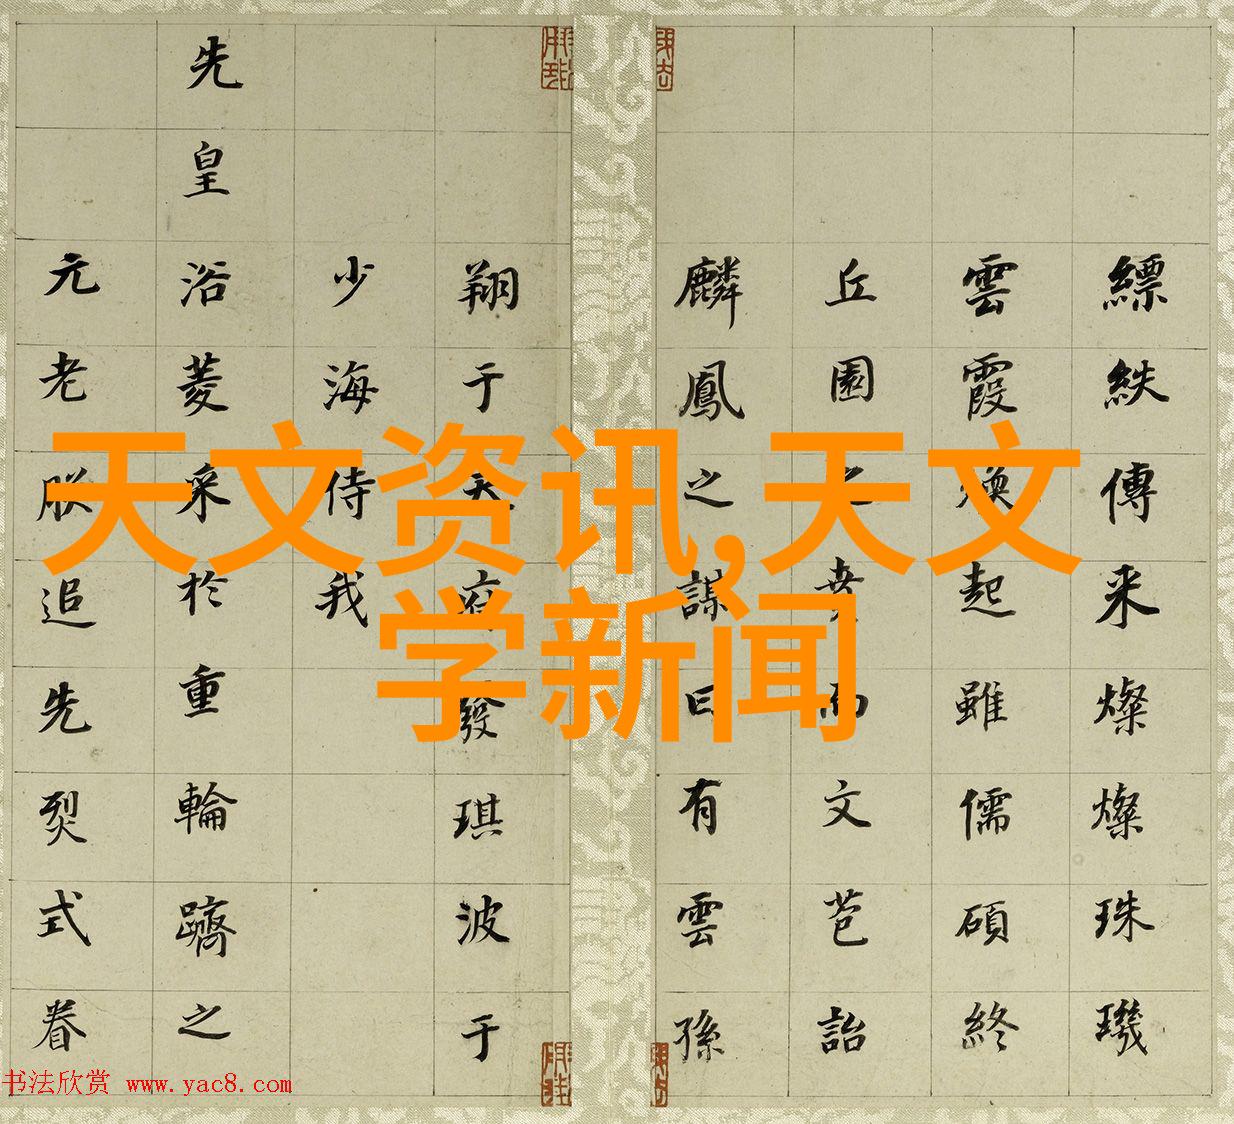 天文资讯,天文
学新闻
縹帙傳来燦燦珠璣
雲霞煥起雖儒碩終
丘園之賁而文苞詒
麟鳳之謀曰有雲孫
翔于天府發琪波于
少海侍我
先皇浴菱来於重輪躋之
元老朕追先烈式眷
书法欣赏 www.yac8.com